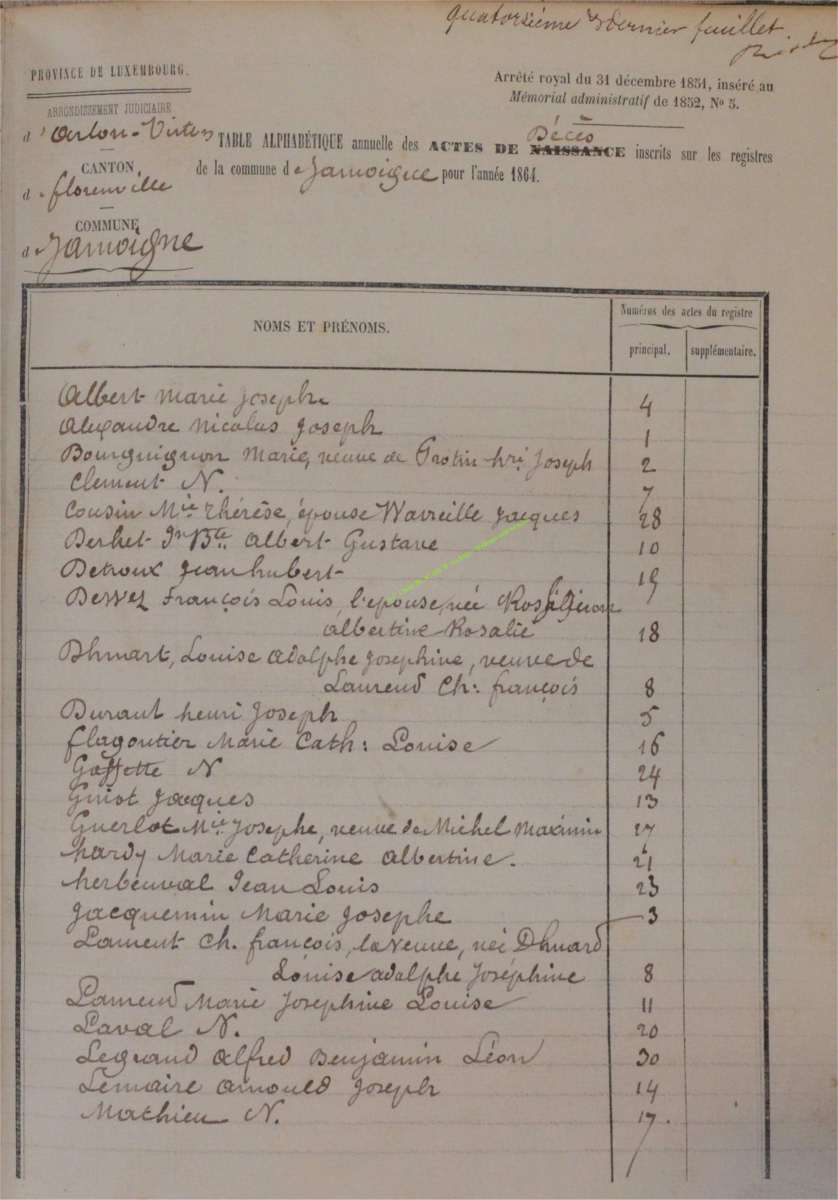 quatorzième et dernier feuillet
PROVINCE DE LUXEMBOURG.
Arrêté royal du 31 décembre 1851, inséré au
Mémorial administratif de 1852, No 5.
ARRONDISSEMENT JUDICIAIRE
d'Arlon-Virton
CANTON
de florenville
COMMUNE
de Jamoigne
Décès
TABLE ALPHABÉTIQUE annuelle des ACTES DE NAISSANCE inscrits sur les registres
de la commune de Jamoigne pour l'année 1864.
NOMS ET PRÉNOMS.
Numéros des actes du registre
principal. supplémentaire.
Albert Marie Josephe 4
Alexandre Nicolas Joseph 1
Bourguignon Marie, veuve de Protin hri Joseph 2
Clement N. 7
Cousin Mie Thérèse, épouse Wavreille Jacques 28
Berhet Jn Bte Albert Gustave 10
Detroux Jean hubert 19
Dewez François Louis, l'épouse, née
Albertine Rosalie 18
Dhuart, Louise Adolphe Josephine, veuve de
Laurend Ch: françois 8
Durant henri Joseph 5
flagoutier Marie Cath: Louise 16
Goffette N 24
Guiot Jacques 13
Guerlot Mie Josephe, veuve de Michel Maximin 27
hardy Marie Catherine Albertine. 21
herbeuval Jean Louis 23
Jacquemin Marie Josephe 3
Laurent Ch. françois, la veuve, née Dhuard
Louise adolphe Joséphine 8
Laurend Marie Josephine Louise 11
Laval N. 20
Legrand Alfred Benjamin Léon 30
Lemaire Arnould Joseph 14
Mathieu N. 17